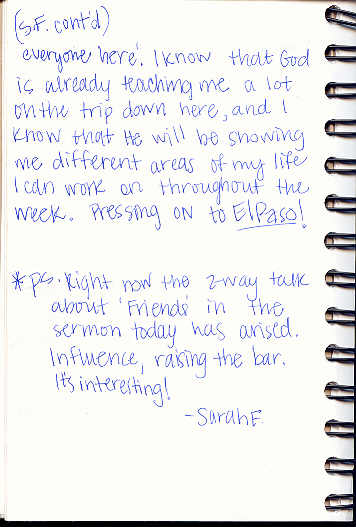 (S.F. cont'd)
everyone here! I know that God
is already teaching me a lot
on the trip down here, and I
know that He will be showing
me different areas of my life
I can work on throughout the
week. Pressing on to El Paso!
*ps. Right now the 2-way talk
about 'Friends' in the
sermon today has arised.
Influence, raising the bar.
It's interesting!
-Sarah F